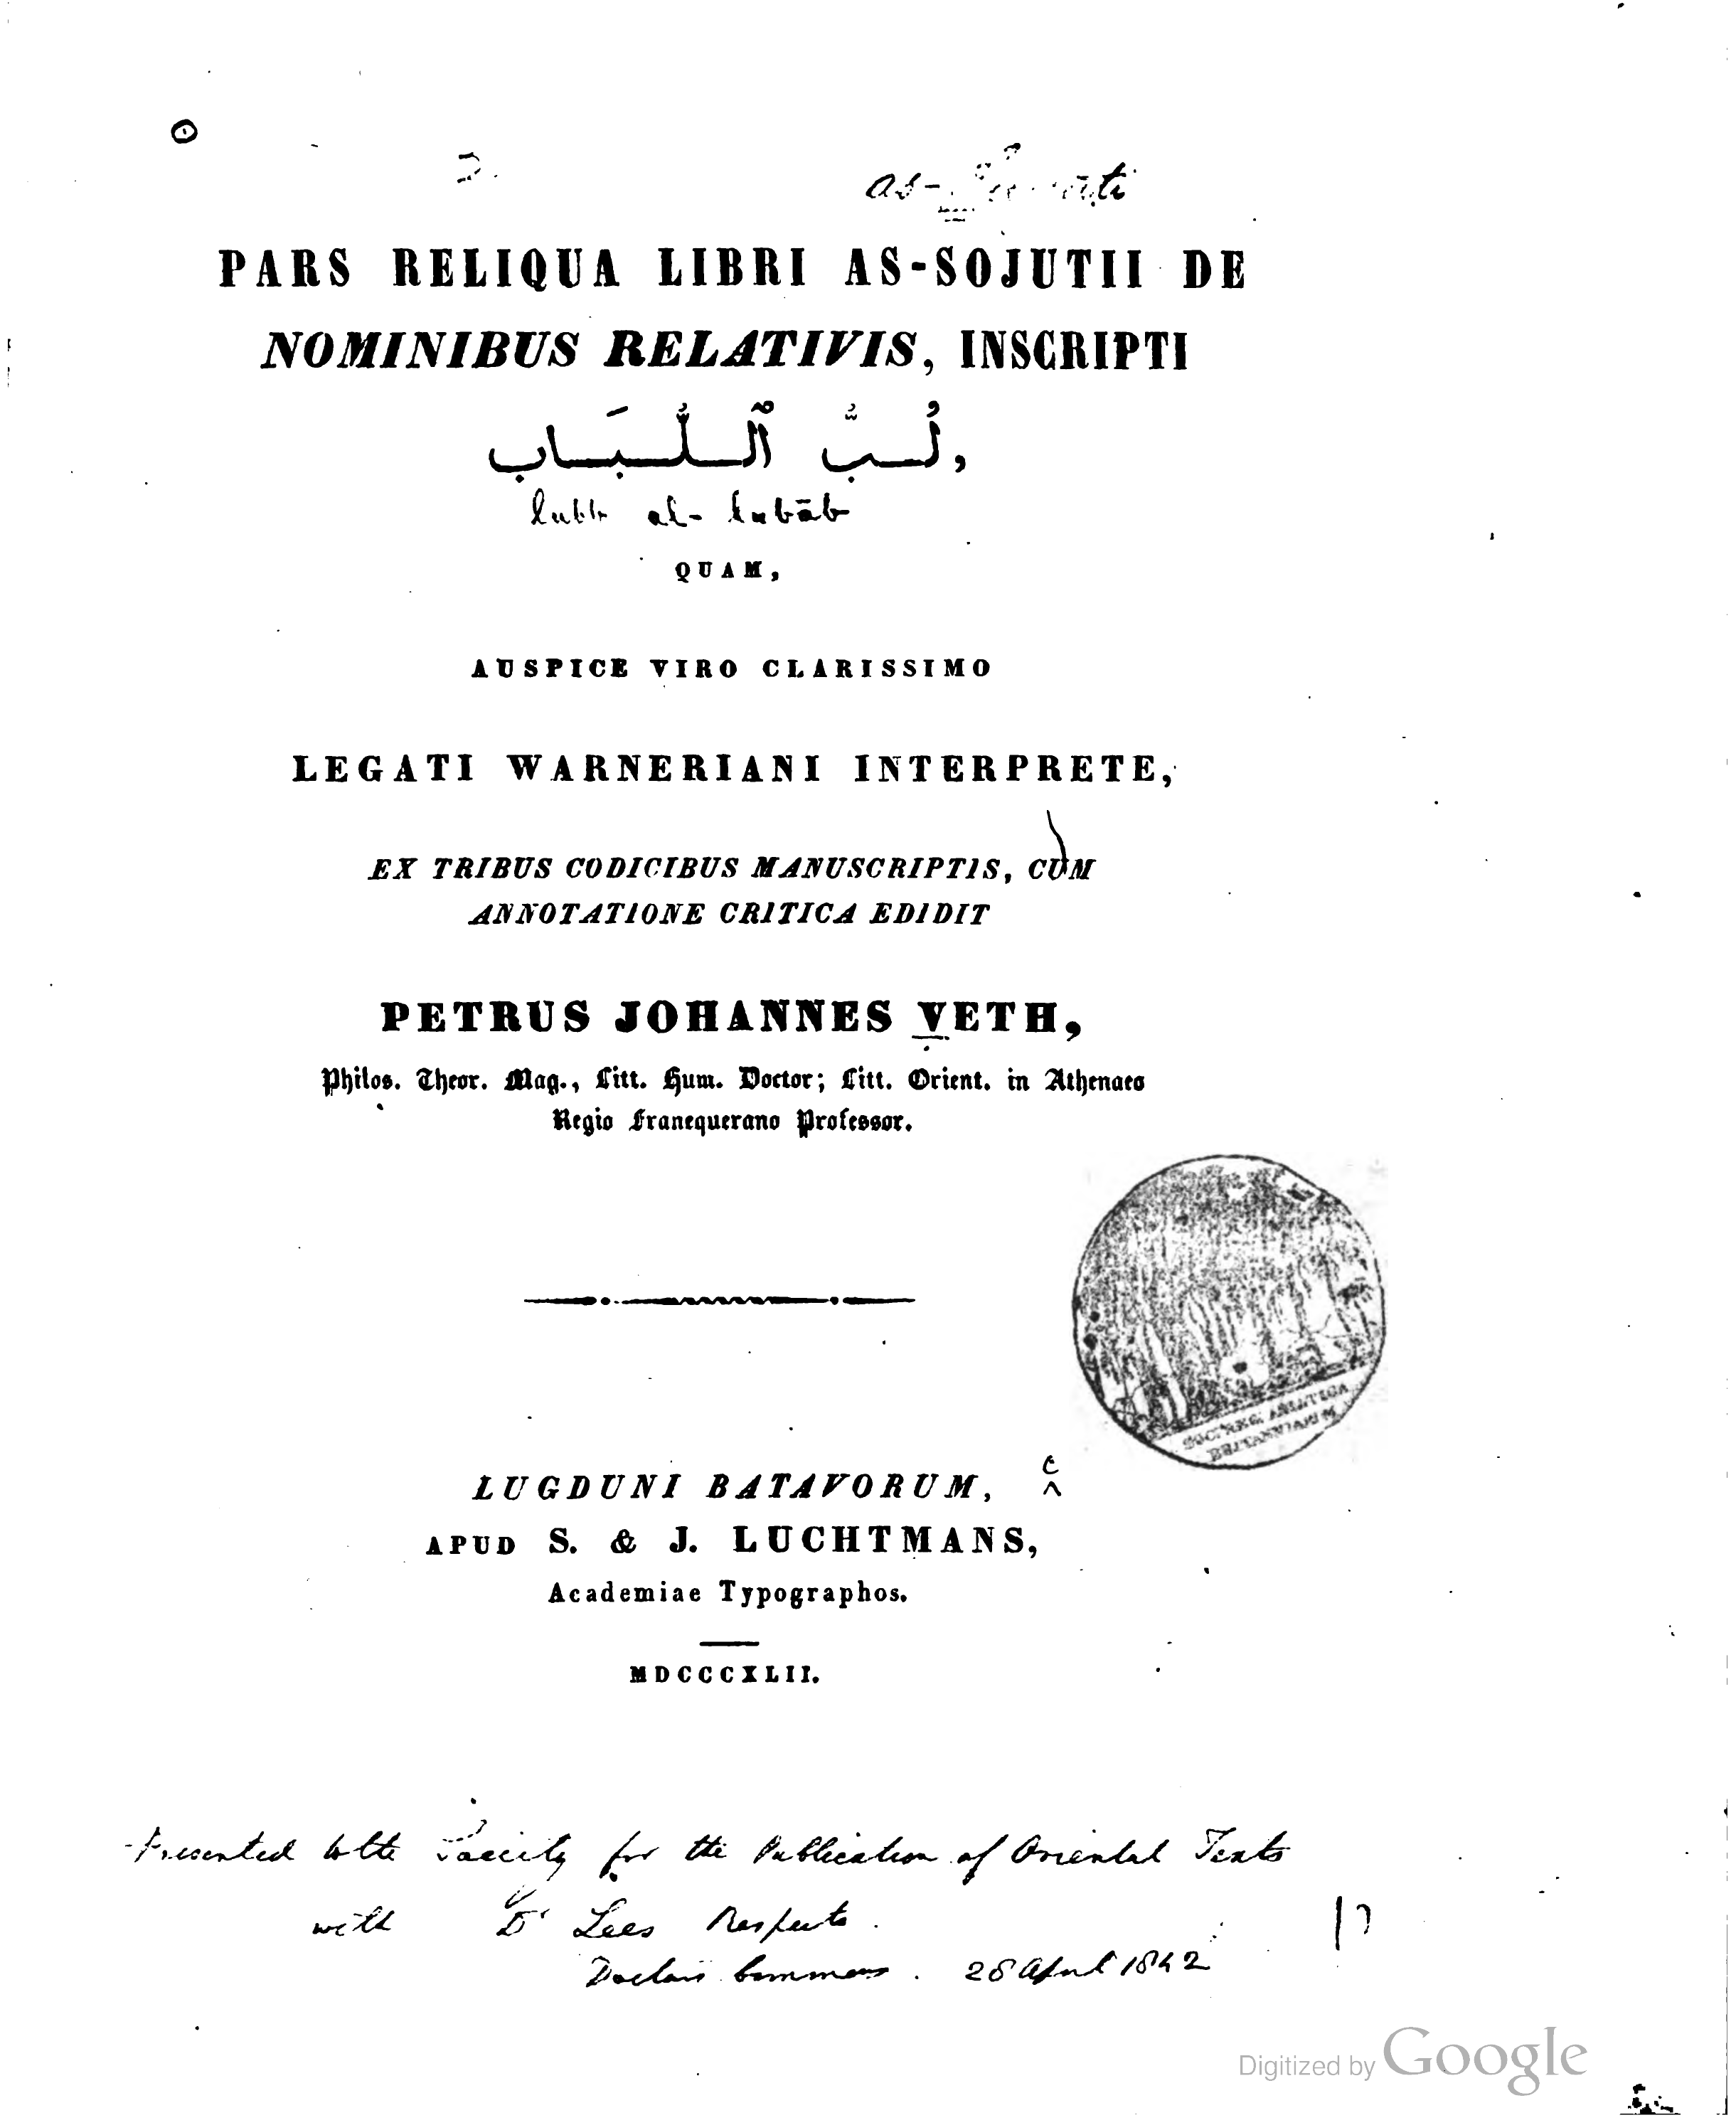 PARS RELIQUA LIBRI AS-SOJUTII DE
NOMINIBUS RELATIVIS, INSCRIPTI
لُبُّ ٱللُّبَاب,
lubb al-lubāb
QUAM,
AUSPICE VIRO CLARISSIMO
LEGATI WARNERIANI INTERPRETE,
EX TRIBUS CODICIBUS MANUSCRIPTIS, CUM
ANNOTATIONE CRITICA EDIDIT
PETRUS JOHANNES VETH,
Philos. Theor. Mag., Litt. Hum. Doctor; Litt. Orient. in Athenaeo
Regio Franequerano Professor.
SOC. REG. ASIATICA
BRITANNIARUM
LUGDUNI BATAVORUM,
APUD S. & J. LUCHTMANS,
Academiae Typographos.
MDCCCXLII.
Presented to the Society for the Publication of Oriental Texts
with Dr Lees Respects.
Doctors Commons. 28 April 1842
Digitized by Google